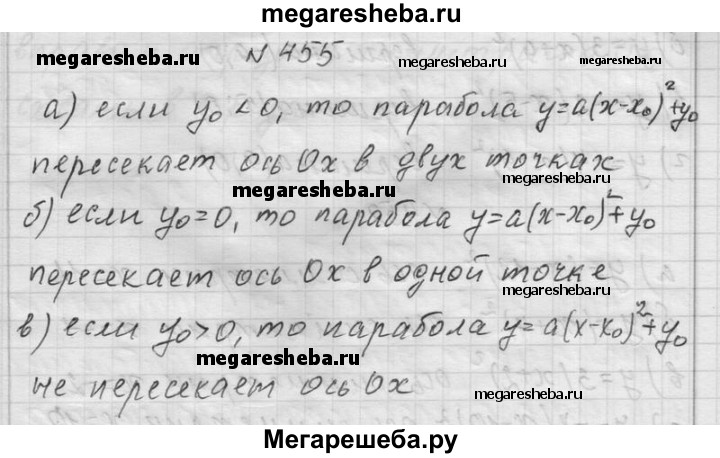 megaresheba.ru
megaresheba.ru
N 455
megaresheba.ru
а) если y₀ < 0, то парабола y=a(x-x₀)²+y₀
пересекает ось Ox в двух точках
megaresheba.ru
megaresheba.ru
б) если y₀=0, то парабола y=a(x-x₀)²+y₀
пересекает ось Ox в одной точке
megaresheba.ru
в) если y₀>0, то парабола y=a(x-x₀)²+y₀
megaresheba.ru
не пересекает ось Ox
megaresheba.ru
Мегарешеба.ру